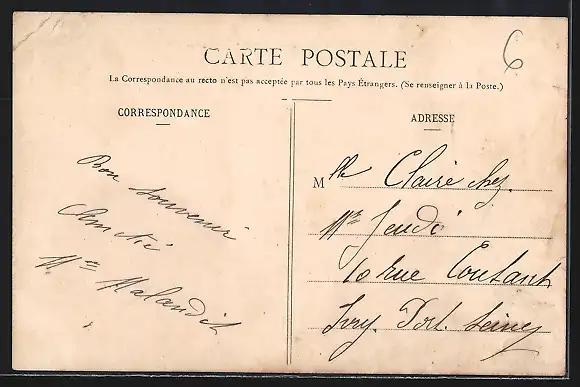 6
CARTE POSTALE
La Correspondance au recto n'est pas acceptée par tous les Pays Étrangers. (Se renseigner à la Poste.)
CORRESPONDANCE
Bon souvenir
Mme Malandit
ADRESSE
Mlle Claire chez
Mr Jeudi
10 rue Coutant
Ivry Port Seine